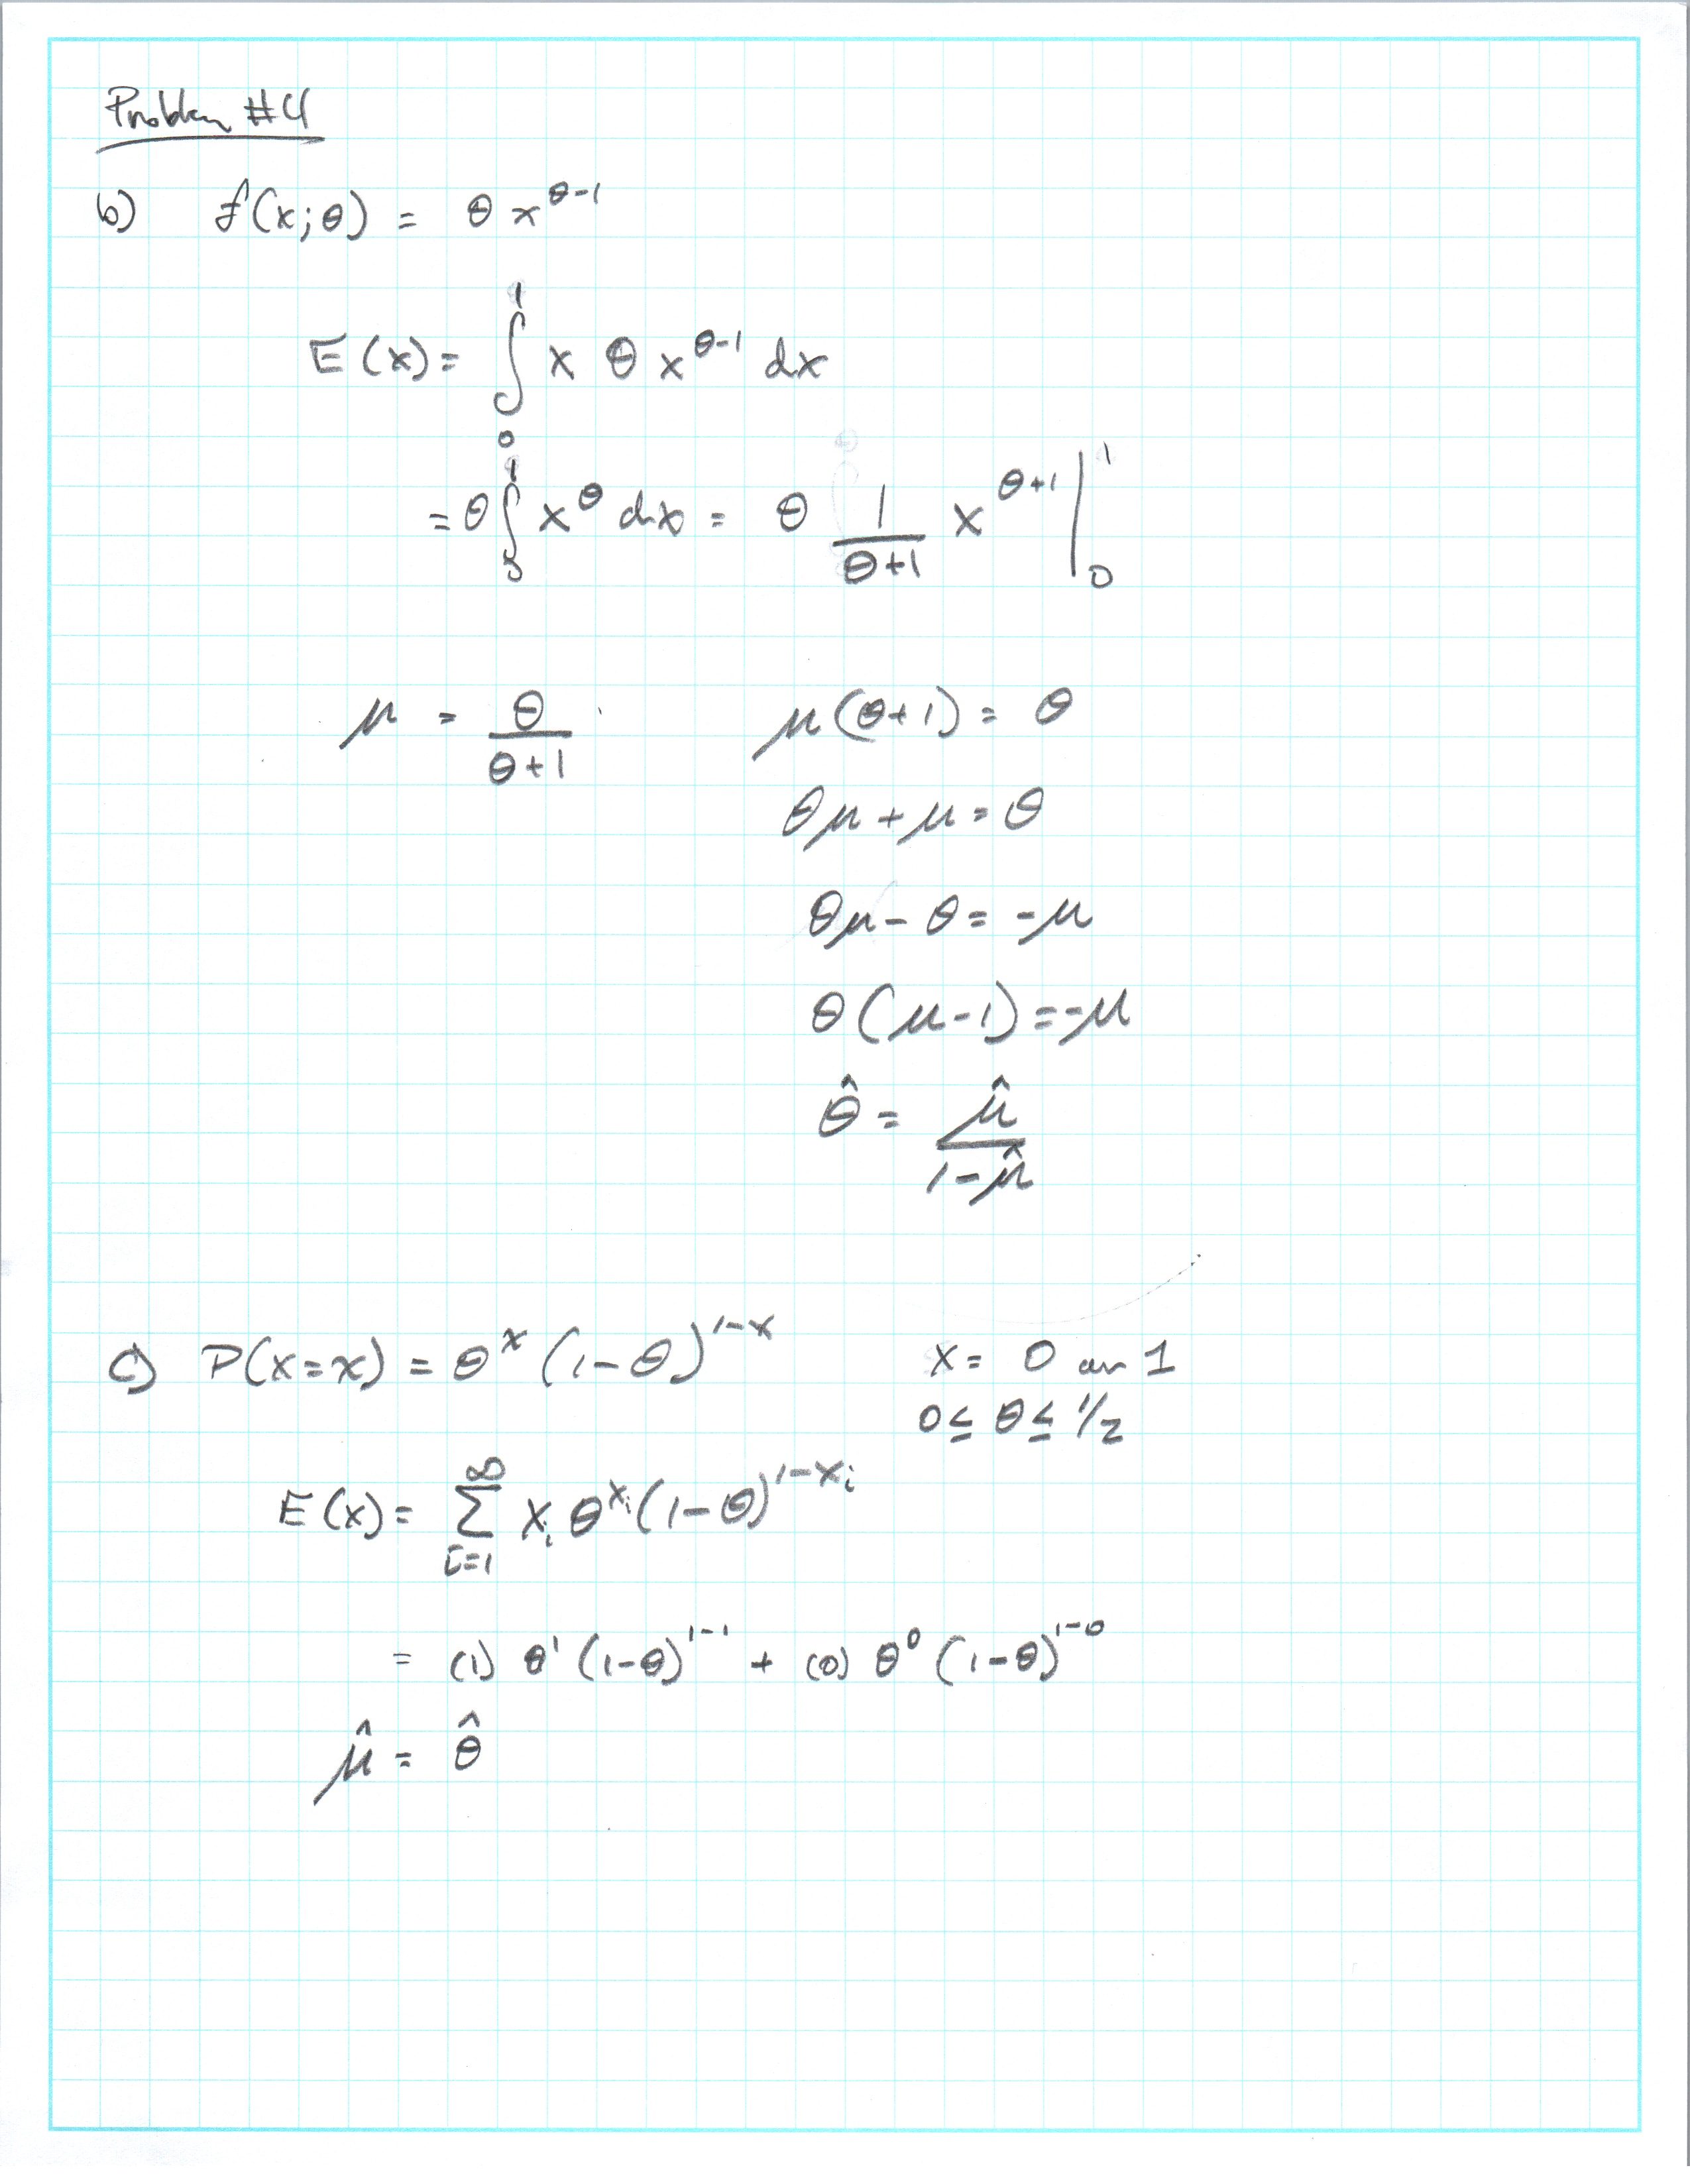 Problem #4
b) f(x;θ) = θ x^(θ-1)
E(x) = ∫_0^1 x θ x^(θ-1) dx
= θ ∫_0^1 x^θ dx = θ 1/(θ+1) x^(θ+1) |_0^1
μ = θ/(θ+1) μ(θ+1) = θ
θμ + μ = θ
θμ - θ = -μ
θ(μ-1) = -μ
θ̂ = μ̂/(1-μ̂)
c) P(X=x) = θ^x (1-θ)^(1-x) x = 0 or 1
0 ≤ θ ≤ 1/2
E(x) = Σ_(i=1)^∞ x_i θ^(x_i) (1-θ)^(1-x_i)
= (1) θ^1 (1-θ)^(1-1) + (0) θ^0 (1-θ)^(1-0)
μ̂ = θ̂